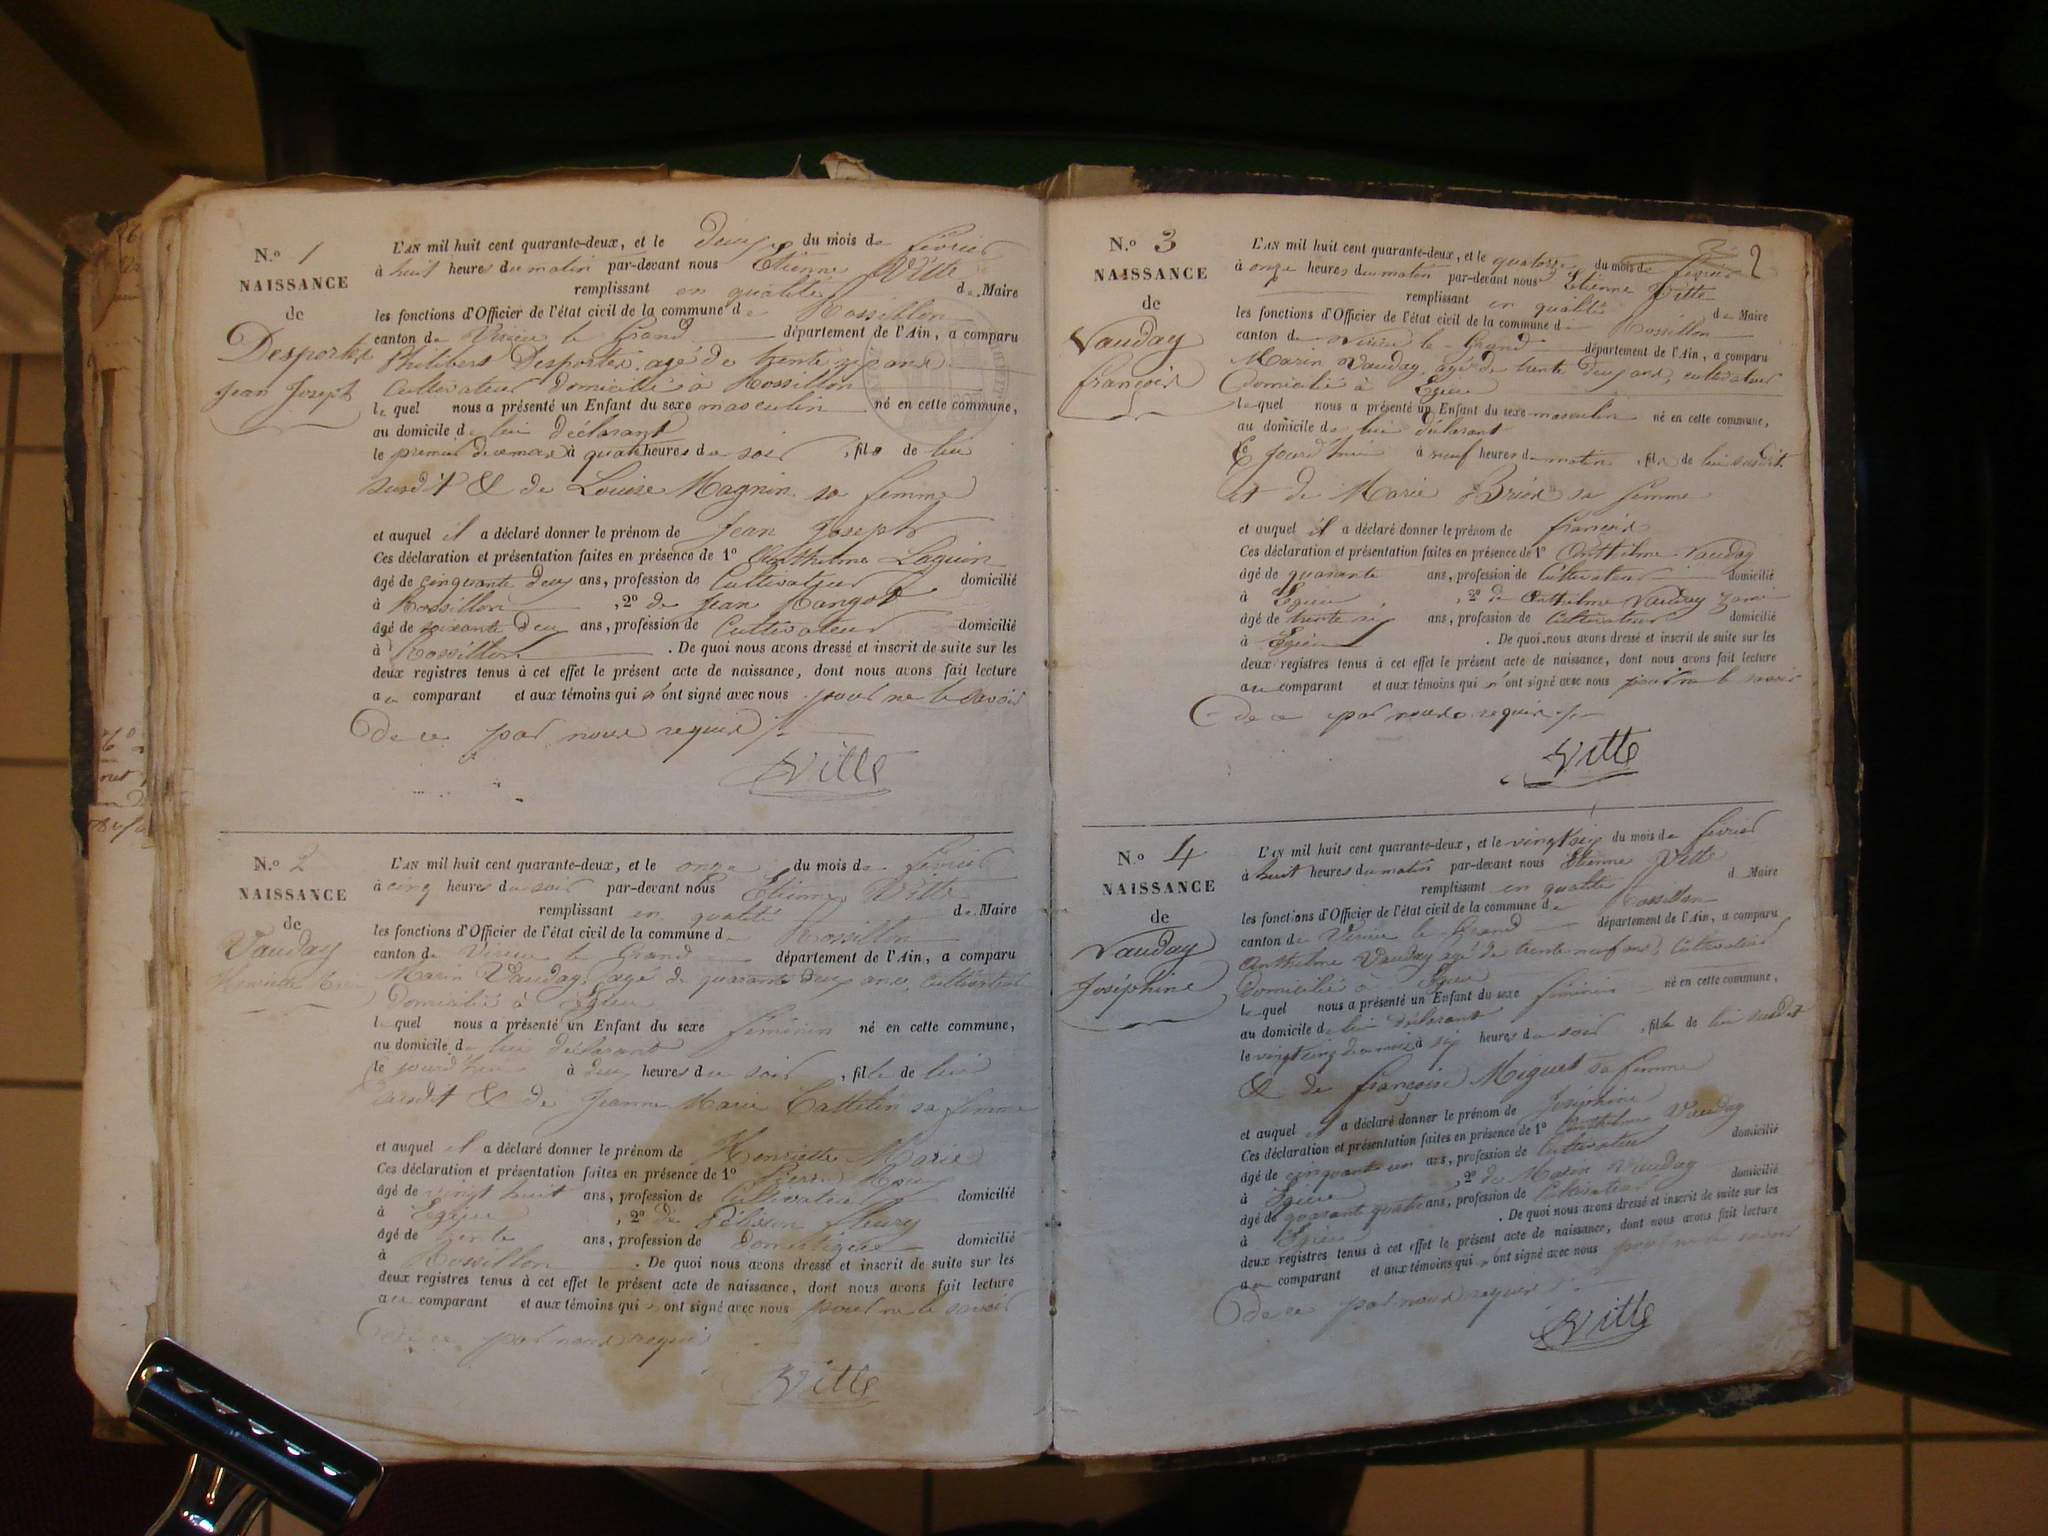 N.o 1
NAISSANCE
de
Desportes
Jean Joseph
L'AN mil huit cent quarante-deux, et le deux du mois de février
à huit heures du matin par-devant nous Etienne Vitte
remplissant en qualité de Maire
les fonctions d'Officier de l'état civil de la commune de Rossillon
canton de Virieu le Grand département de l'Ain, a comparu
Philibert Desportes, agé de trente six ans
Cultivateur domicilié à Rossillon
lequel nous a présenté un Enfant du sexe masculin né en cette commune,
au domicile de lui déclarant
le premier de ce mois à quatre heures du soir, fils de lui
susdit & de Louise Magnin sa femme
et auquel il a déclaré donner le prénom de Jean Joseph
Ces déclaration et présentation faites en présence de 1o Anthelme Laguin
âgé de cinquante deux ans, profession de Cultivateur domicilié
à Rossillon, 2o de Jean Mangot
âgé de soixante deux ans, profession de Cultivateur domicilié
à Rossillon. De quoi nous avons dressé et inscrit de suite sur les
deux registres tenus à cet effet le présent acte de naissance, dont nous avons fait lecture
au comparant et aux témoins qui n'ont signé avec nous pour ne le savoir
de ce par nous requis
Vitte
N.o 2
NAISSANCE
de
Vauday
Henriette Marie
L'AN mil huit cent quarante-deux, et le onze du mois de février
à cinq heures du soir par-devant nous Etienne Vitte
remplissant en qualité de Maire
les fonctions d'Officier de l'état civil de la commune de Rossillon
canton de Virieu le Grand département de l'Ain, a comparu
Marin Vauday, agé de quarante deux ans, cultivateur
Domicilié à Egieu
lequel nous a présenté un Enfant du sexe féminin né en cette commune,
au domicile de lui déclarant
le jourd'hui à deux heures du soir, fille de lui
susdit & de Jeanne Marie Cattelin sa femme
et auquel il a déclaré donner le prénom de Henriette Marie
Ces déclaration et présentation faites en présence de 1o Pierre Roux
âgé de vingt huit ans, profession de Cultivateur domicilié
à Egieu, 2o de Pélisson fleury
âgé de trente ans, profession de Domestique domicilié
à Rossillon. De quoi nous avons dressé et inscrit de suite sur les
deux registres tenus à cet effet le présent acte de naissance, dont nous avons fait lecture
au comparant et aux témoins qui n'ont signé avec nous pour ne le savoir
de ce par nous requis
Vitte
2
N.o 3
NAISSANCE
de
Vauday
françois
L'AN mil huit cent quarante-deux, et le quatorze du mois de février
à onze heures du matin par-devant nous Etienne Vitte
remplissant en qualité de Maire
les fonctions d'Officier de l'état civil de la commune de Rossillon
canton de Virieu le Grand département de l'Ain, a comparu
Marin Vauday, agé de trente deux ans, cultivateur
domicilié à Egieu
lequel nous a présenté un Enfant du sexe masculin né en cette commune,
au domicile de lui déclarant
le jourd'hui à neuf heures du matin, fils de lui susdit
et de Marie Brion sa femme
et auquel il a déclaré donner le prénom de françois
Ces déclaration et présentation faites en présence de 1o Anthelme Vauday
âgé de quarante ans, profession de Cultivateur domicilié
à Egieu, 2o de Anthelme Vauday
âgé de trente six ans, profession de Cultivateur domicilié
à Egieu. De quoi nous avons dressé et inscrit de suite sur les
deux registres tenus à cet effet le présent acte de naissance, dont nous avons fait lecture
au comparant et aux témoins qui n'ont signé avec nous pour ne le savoir
de ce par nous requis
Vitte
N.o 4
NAISSANCE
de
Vauday
Joséphine
L'AN mil huit cent quarante-deux, et le vingt six du mois de février
à huit heures du matin par-devant nous Etienne Vitte
remplissant en qualité d Maire
les fonctions d'Officier de l'état civil de la commune de Rossillon
canton de Virieu le Grand département de l'Ain, a comparu
Anthelme Vauday agé de trente neuf ans, Cultivateur
Domicilié à Egieu
lequel nous a présenté un Enfant du sexe féminin né en cette commune,
au domicile de lui déclarant
le vingt cinq du mois à six heures du soir, fille de lui susdit
& de françoise Miguet sa femme
et auquel il a déclaré donner le prénom de Joséphine
Ces déclaration et présentation faites en présence de 1o Anthelme Vauday
âgé de cinquante un ans, profession de Cultivateur domicilié
à Egieu, 2o de Marin Vauday
âgé de quarante quatre ans, profession de Cultivateur domicilié
à Egieu. De quoi nous avons dressé et inscrit de suite sur les
deux registres tenus à cet effet le présent acte de naissance, dont nous avons fait lecture
au comparant et aux témoins qui n'ont signé avec nous pour ne le savoir
de ce par nous requis
Vitte